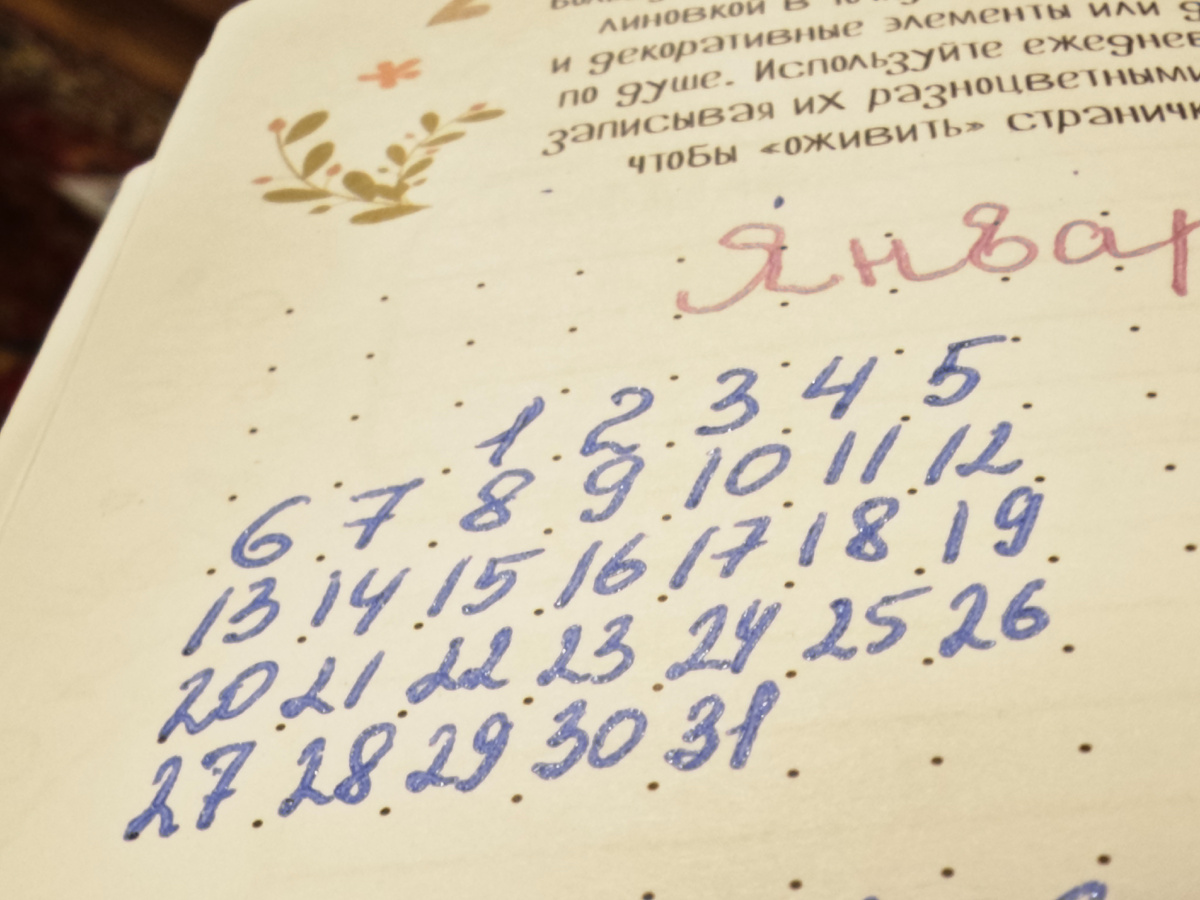 линовкой в
и декоративные элементы или
по душе. Используйте
записывая их разноцветными
чтобы «оживить»
1 2 3 4 5
6 7 8 9 10 11 12
13 14 15 16 17 18 19
20 21 22 23 24 25 26
27 28 29 30 31